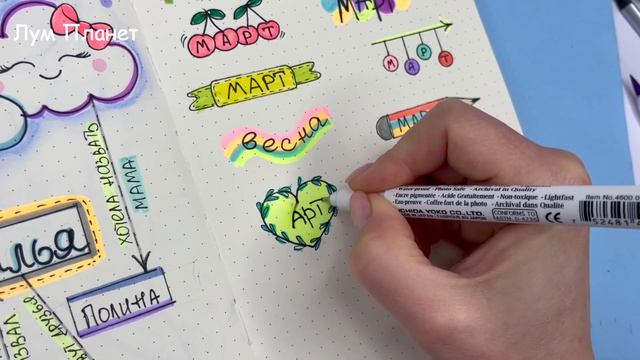 Лум Планет
МАРТ
Март
МАРТ
МАРТ
весна
МАРТ
АРТ
ХОТЕЛА НАЗВАТЬ
МАМА
ПОЛИНА
Water-proof • Photo Safe • Archival in Quality
• Encre pigmentée • Acide Gratuitement • Non-toxique • Lightfast
• Eau-preuve • Coffre-fort de la photo • Archival dans Qualité
UCHIDA YOKO CO., LTD.
CONFORMS TO
ASTM D-4236
Item No.4600